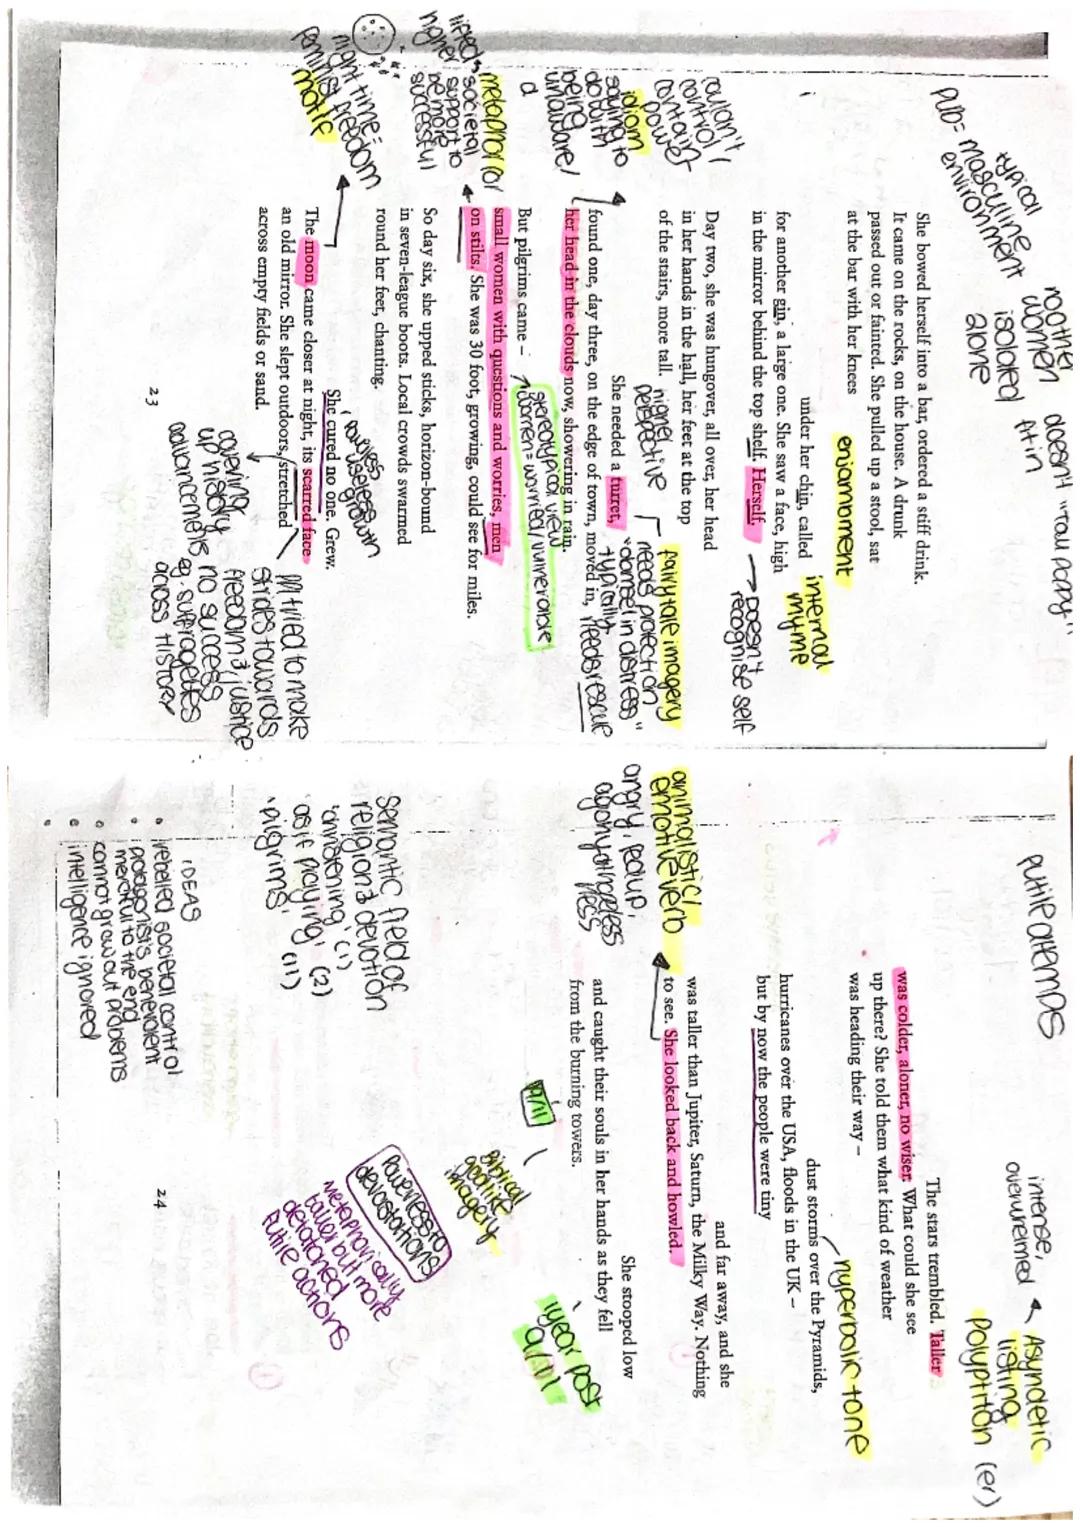 no other women
isolated
alone
doesn't "Tall Poppy"
fit in
PUB = masculine
typical environment
She bowed herself into a bar, ordered a stiff drink.
It came on the rocks, on the house. A drunk
passed out or fainted. She pulled up a stool, sat
at the bar with her knees
enjambment
under her chin, called
internal
rhyme
for another gin, a large one. She saw a face, high
in the mirror behind the top shelf. Herself,
Doesn't
recognise self
couldn't
control/
contain
power
Day two, she was hungover, all over, her head
in her hands in the hall, her feet at the top
of the stairs, more tall.
higher
perspective
fairytale imagery
needs protection
"damsel in distress"
typically
needs rescue
idiom
saying to
do with
being
unaware/
She needed a turret,
found one, day three, on the edge of town, moved in,
her head in the clouds now, showering in rain.
stereotypical view
women = worried/vulnerable
But pilgrims came –
small women with questions and worries, men
on stilts. She was 30 foot, growing, could see for miles.
metaphor for
societal
support to
be more
successful
lifted
higher
So day six, she upped sticks, horizon-bound
in seven-league boots. Local crowds swarmed
round her feet, chanting.
She cured no one. Grew.
powers
useless
growth
night time =
freedom
motif
The moon came closer at night, its scarred face
an old mirror. She slept outdoors, stretched
across empty fields or sand.
covering
up history
no success
advancements
eg. suffragettes
across HISTORY
tried to make
strides towards
freedom & justice
23
futile attempts
intense,
overwhelmed
Asyndetic
listing
polyptton (er)
The stars trembled. Taller
was colder, aloner, no wiser. What could she see
up there? She told them what kind of weather
was heading their way –
hyperbolic tone
dust storms over the Pyramids,
hurricanes over the USA, floods in the UK –
but by now the people were tiny
and far away, and she
was taller than Jupiter, Saturn, the Milky Way. Nothing
to see. She looked back and howled.
animalistic/
emotive verb
She stooped low
and caught their souls in her hands as they fell
from the burning towers.
9/11
1 year post
9/11
Biblical
godlike
imagery
Powerless to
devastations
Metaphorically
taller but more
futile actions
semantic field of
religion & devotion
'christening' (1)
'as if praying' (2)
'pilgrims' (11)
IDEAS
• rebelled societal control
• protagonist's benevolent
merciful to the end
• cannot grow out problems
• intelligence ignored
24